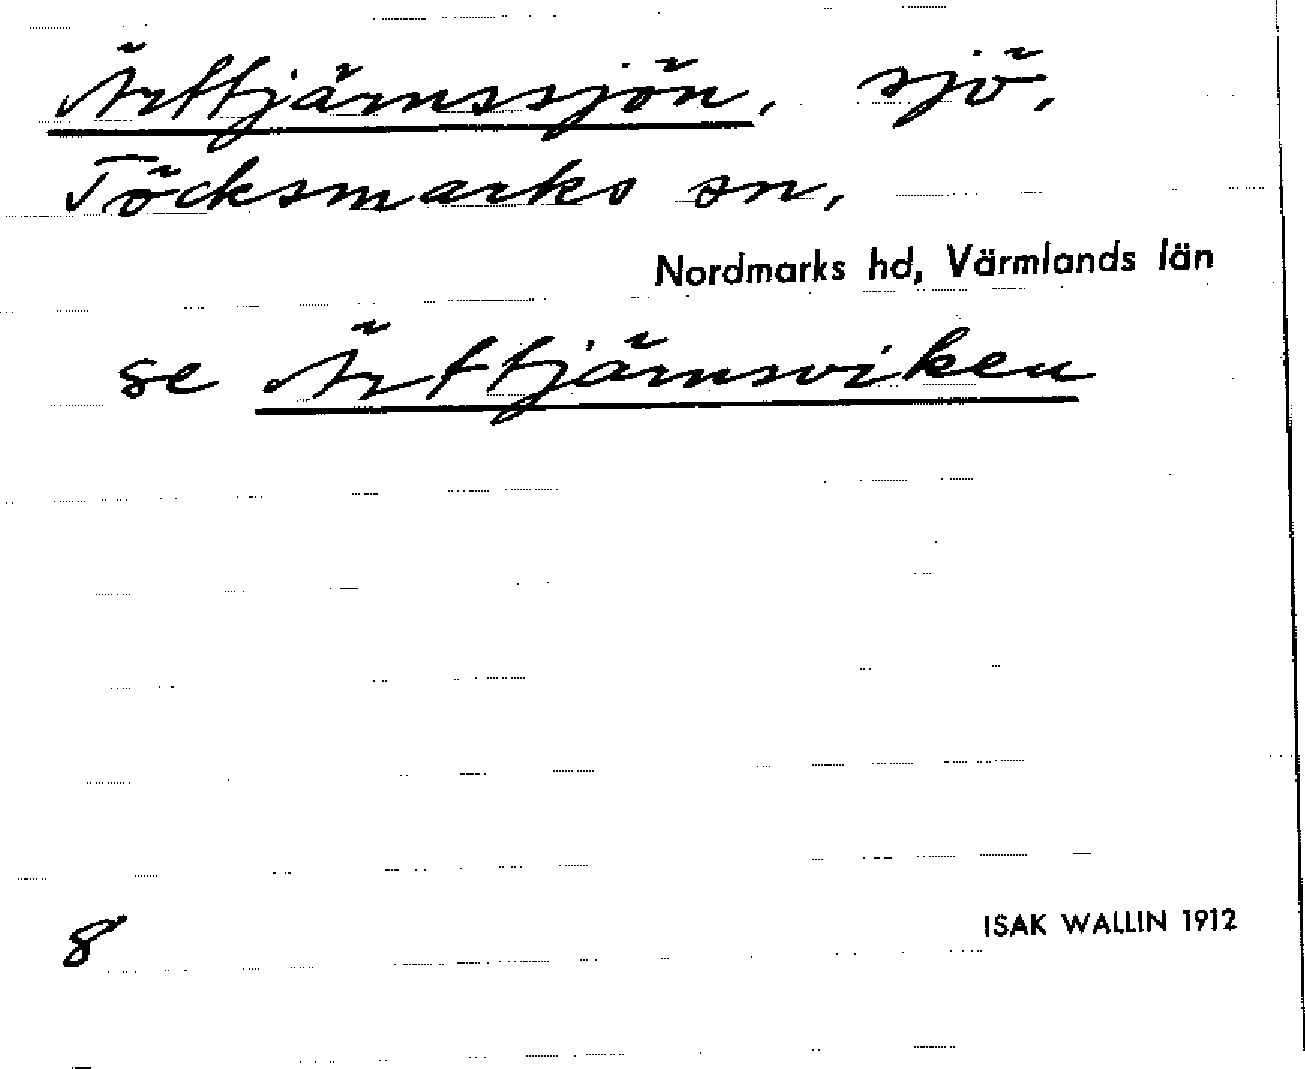 Ärttjärnssjön, sjö,
Töcksmarks sn,
Nordmarks hd, Värmlands län
se Ärttjärnsviken
8
ISAK WALLIN 1912